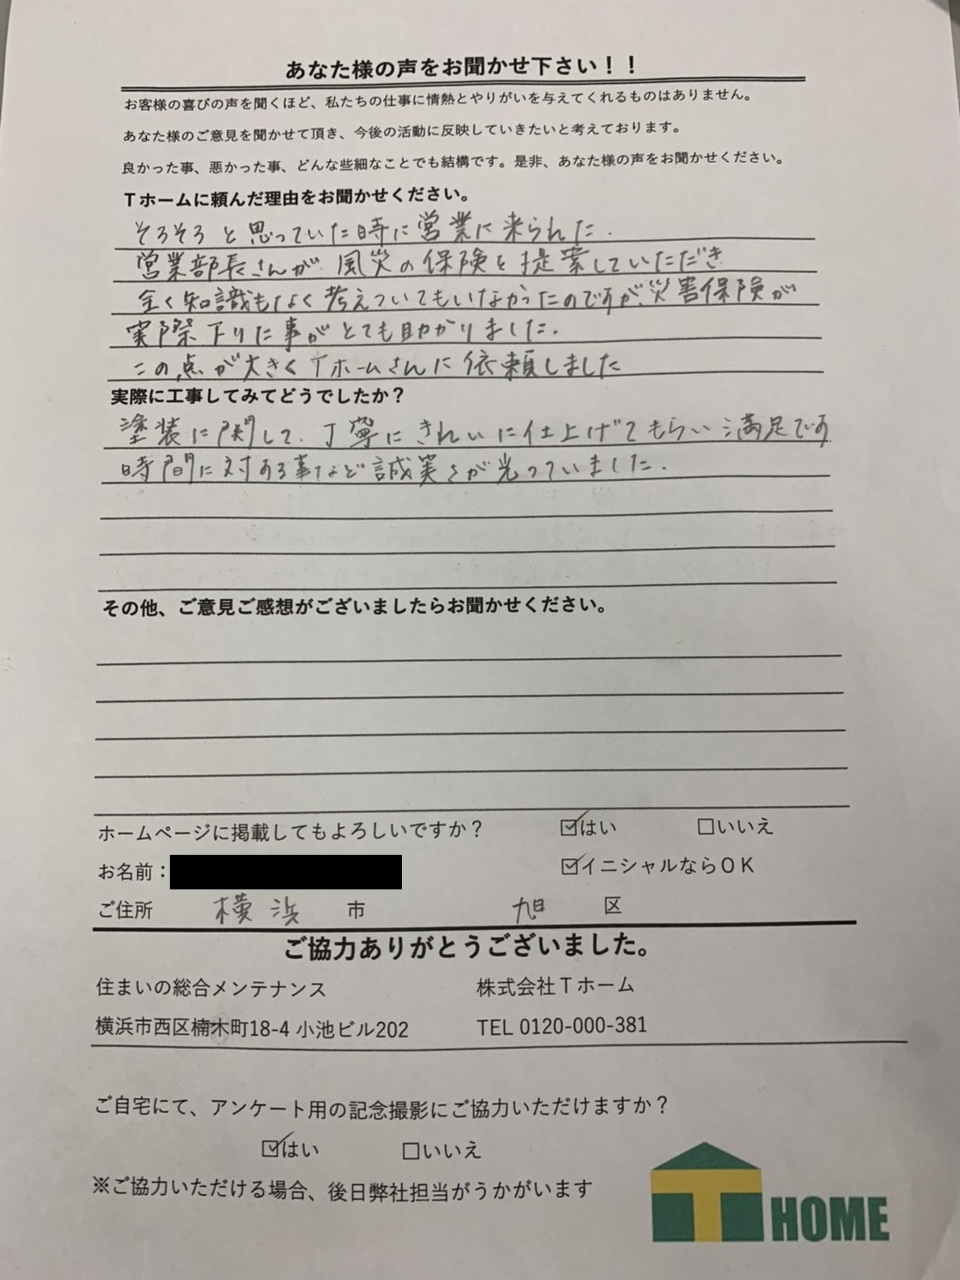 あなた様の声をお聞かせ下さい！！
お客様の喜びの声を聞くほど、私たちの仕事に情熱とやりがいを与えてくれるものはありません。
あなた様のご意見を聞かせて頂き、今後の活動に反映していきたいと考えております。
良かった事、悪かった事、どんな些細なことでも結構です。是非、あなた様の声をお聞かせください。
Tホームに頼んだ理由をお聞かせください。
そろそろと思っていた時に営業に来られた.
営業部長さんが、風災の保険を提案していただき
全く知識もなく考えついてもいなかったのですが、災害保険が
実際下りた事がとても助かりました.
この点が大きくTホームさんに依頼しました
実際に工事してみてどうでしたか？
塗装に関して、丁寧にきれいに仕上げてもらい満足です
時間に対する事など誠実さが光っていました.
その他、ご意見ご感想がございましたらお聞かせください。
ホームページに掲載してもよろしいですか？ ☑はい □いいえ
お名前： ☑イニシャルならOK
ご住所 横浜 市 旭 区
ご協力ありがとうございました。
住まいの総合メンテナンス 株式会社Tホーム
横浜市西区楠木町18-4 小池ビル202 TEL 0120-000-381
ご自宅にて、アンケート用の記念撮影にご協力いただけますか？
☑はい □いいえ
※ご協力いただける場合、後日弊社担当がうかがいます
T HOME